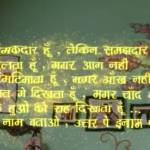 चमकदार हूँ , लेकिन समझदार
जलता हूँ , मगर आग नहीं
टिमटिमाता हूँ , मगर आँख नहीं
रात में दिखता हूँ , मगर चाँद
हुओं को राह दिखाता हूँ
नाम बताओ , उत्तर पे इनाम